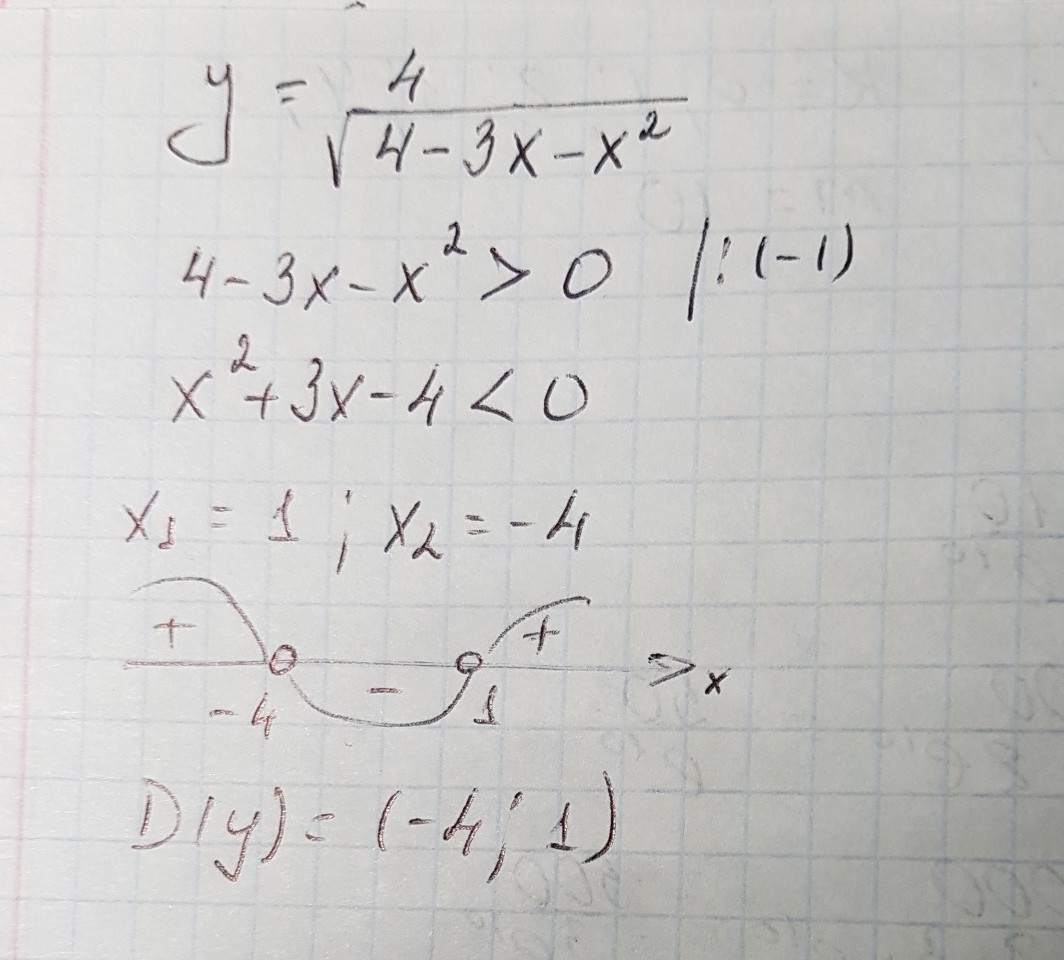 y = 4/√(4-3x-x²)
4-3x-x² > 0 |:(-1)
x²+3x-4 < 0
x₁ = 1 ; x₂ = -4
+ - + x
-4 1
D(y) = (-4; 1)